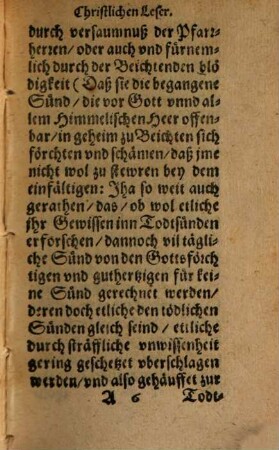 Christlichen Leser.
durch versaumnuß der Pfarr-
herren/ oder auch vnd fürnem-
lich durch der Beichtenden blö-
digkeit (Daß sie die begangene
Sünd/ die vor Gott vnnd al-
lem Himmelischen Heer offen-
bar/ in geheim zu Beichten sich
förchten vnd schämen/ daß jme
nicht wol zu stewren bey dem
einfältigen: Jha so weit auch
gerathen/ das/ ob wol etliche
jhr Gewissen inn Todtsünden
erforschen/ dannoch vil tägli-
che Sünd von den Gottsförch
tigen vnd guthertzigen für kei-
ne Sünd gerechnet werden/
deren doch etliche den tödlichen
Sünden gleich seind/ ettliche
durch sträffliche vnwissenheit
gering geschetzet vberschlagen
werden/ vnd also gehäuffet zur
A 6 Todt-